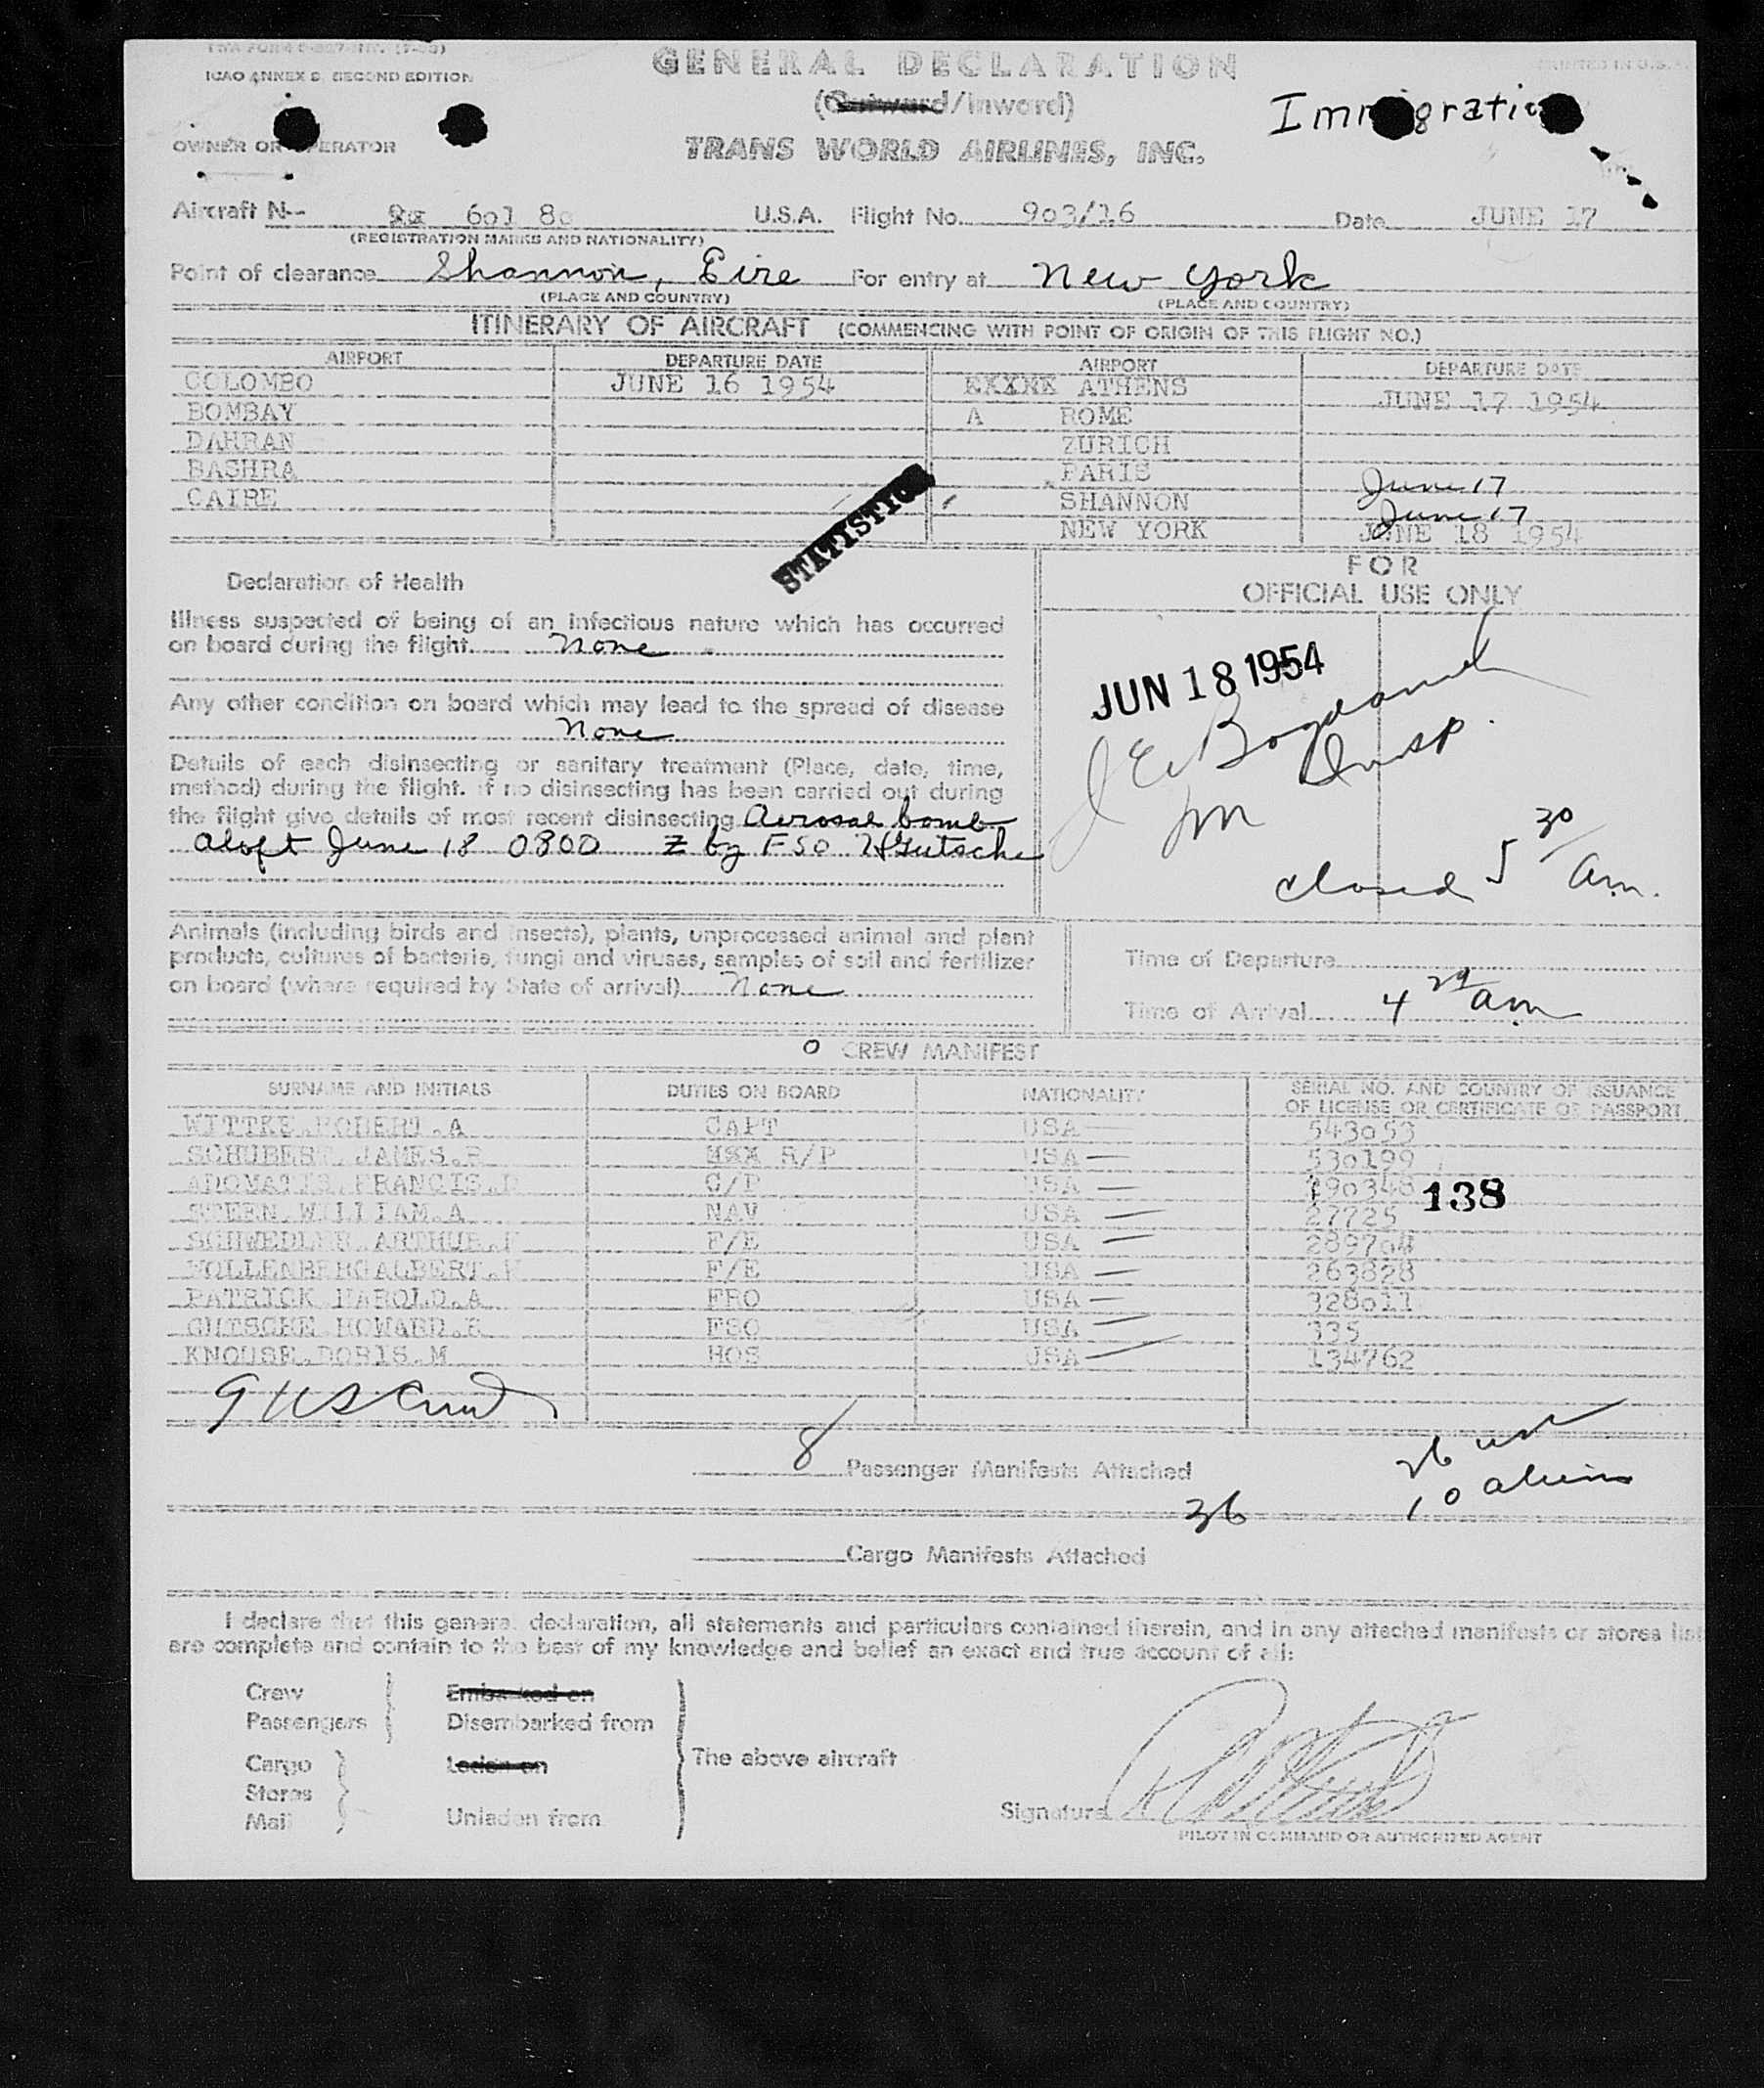 ICAO ANNEX 9, SECOND EDITION
GENERAL DECLARATION
(Outward/Inward)
Immigration
OWNER OR OPERATOR
TRANS WORLD AIRLINES, INC.
Aircraft N-- 6o1 8o U.S.A. Flight No. 9o3/16 Date JUNE 17
(REGISTRATION MARKS AND NATIONALITY)
Point of clearance Shannon, Eire For entry at New York
(PLACE AND COUNTRY) (PLACE AND COUNTRY)
ITINERARY OF AIRCRAFT (COMMENCING WITH POINT OF ORIGIN OF THIS FLIGHT NO.)
AIRPORT DEPARTURE DATE AIRPORT DEPARTURE DATE
COLOMBO JUNE 16 1954 ATHENS JUNE 17 1954
BOMBAY A ROME
DAHRAN ZURICH
BASHRA PARIS June 17
CAIRE SHANNON June 17
NEW YORK JUNE 18 1954
STATISTICS
Declaration of Health
FOR
OFFICIAL USE ONLY
Illness suspected of being of an infectious nature which has occurred
on board during the flight. None
Any other condition on board which may lead to the spread of disease
None
JUN 18 1954
Insp.
Details of each disinsecting or sanitary treatment (Place, date, time,
method) during the flight. If no disinsecting has been carried out during
the flight give details of most recent disinsecting Aerosal bomb
aloft June 18 0800 Z by FSO HGutsche
closed 5 30/am.
Animals (including birds and insects), plants, unprocessed animal and plant
products, cultures of bacteria, fungi and viruses, samples of soil and fertilizer
on board (where required by State of arrival) None
Time of Departure
Time of Arrival 4 29 am
o CREW MANIFEST
SURNAME AND INITIALS DUTIES ON BOARD NATIONALITY SERIAL NO. AND COUNTRY OF ISSUANCE
OF LICENSE OR CERTIFICATE OR PASSPORT
WITTKE.ROBERT.A CAPT USA 543o53
SCHUBERT.JAMES.R R/P USA 53o199
FRANCIS. USA 138
STERN.WILLIAM.A NAV USA 27725
SCHWEDLER.ARTHUR.F F/E USA 2897o4
ALBERT. F/E USA 263828
PATRICK HAROLD.A FRO USA 328o11
GUTSCHE HOWARD.E FSO USA 335
KNOUSE.DORIS.M HOS USA 134762
8 Passenger Manifests Attached
26 usc
10 aliens
36
Cargo Manifests Attached
I declare that this general declaration, all statements and particulars contained therein, and in any attached manifests or stores list
are complete and contain to the best of my knowledge and belief an exact and true account of all:
Crew Embarked on
Passengers Disembarked from
Cargo Laden on The above aircraft
Stores
Mail Unladen from
Signature
PILOT IN COMMAND OR AUTHORIZED AGENT